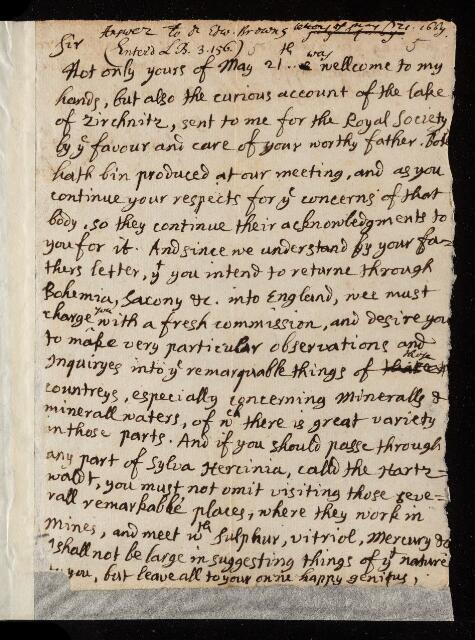 Answer to dr Edw. Browns letter of May /21. 1669.
Sir (Enterd L.B. 3.156.) 5
Not only yours of May 21th was wellcome to my
hands, but also the curious account of the lake
of Zirchnitz, sent to me for the Royal Society
by yᵉ favour and care of your worthy father. Both
hath bin produced at our meeting, and as you
continue your respects for yᵉ concerns of that
body, so they continue their acknowledgments to
you for it. And since we understand by your fa-
thers letter, yᵗ you intend to returne through
Bohemia, Saxony &c. into England, wee must
charge you with a fresh commission, and desire you
to make very particular observations and
Inquiryes into yᵉ remarquable things of those
countreys, especially concerning Mineralls &
minerall waters, of wᶜʰ there is great variety
in those parts. And if you should passe through
any part of Sylva Hercinia, calld the Hartz-
waldt, you must not omit visiting those seve-
rall remarkable places, where they work in
Mines, and meet wᵗʰ Sulphur, vitriol, Mercury &c
I shall not be large in suggesting things of yᵗ nature
to you, but leave all to your owne happy genius,